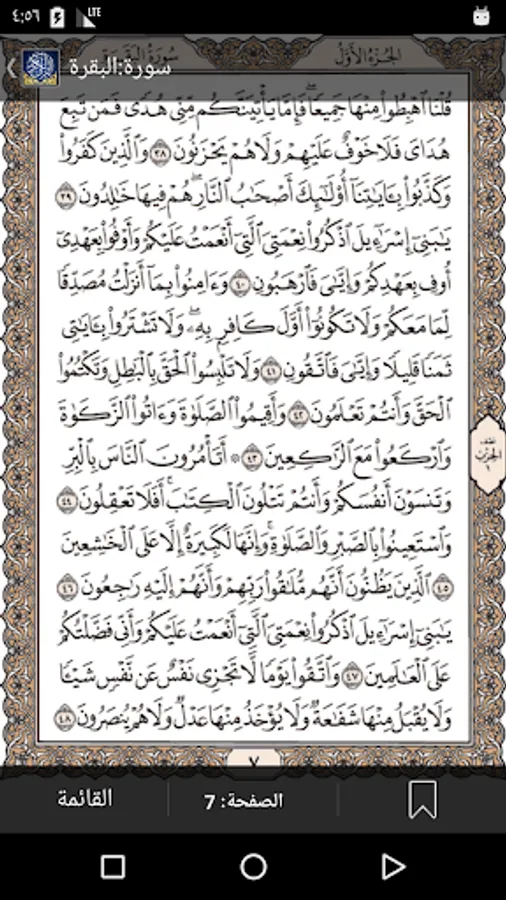 ٤:٥٦
LTE
سورة:البقرة
سُورَةُ الْبَقَرَةِ
الجُزْءُ الأَوَّلُ
قُلْنَا ٱهْبِطُوا۟ مِنْهَا جَمِيعًا ۖ فَإِمَّا يَأْتِيَنَّكُم مِّنِّى هُدًى فَمَن تَبِعَ
هُدَاىَ فَلَا خَوْفٌ عَلَيْهِمْ وَلَا هُمْ يَحْزَنُونَ ٣٨ وَٱلَّذِينَ كَفَرُوا۟
وَكَذَّبُوا۟ بِـَٔايَـٰتِنَآ أُو۟لَـٰٓئِكَ أَصْحَـٰبُ ٱلنَّارِ ۖ هُمْ فِيهَا خَـٰلِدُونَ ٣٩
يَـٰبَنِىٓ إِسْرَٰٓءِيلَ ٱذْكُرُوا۟ نِعْمَتِىَ ٱلَّتِىٓ أَنْعَمْتُ عَلَيْكُمْ وَأَوْفُوا۟ بِعَهْدِىٓ
أُوفِ بِعَهْدِكُمْ وَإِيَّـٰىَ فَٱرْهَبُونِ ٤٠ وَءَامِنُوا۟ بِمَآ أَنزَلْتُ مُصَدِّقًا
لِّمَا مَعَكُمْ وَلَا تَكُونُوٓا۟ أَوَّلَ كَافِرٍۭ بِهِۦ ۖ وَلَا تَشْتَرُوا۟ بِـَٔايَـٰتِى
ثَمَنًا قَلِيلًا وَإِيَّـٰىَ فَٱتَّقُونِ ٤١ وَلَا تَلْبِسُوا۟ ٱلْحَقَّ بِٱلْبَـٰطِلِ وَتَكْتُمُوا۟
ٱلْحَقَّ وَأَنتُمْ تَعْلَمُونَ ٤٢ وَأَقِيمُوا۟ ٱلصَّلَوٰةَ وَءَاتُوا۟ ٱلزَّكَوٰةَ
وَٱرْكَعُوا۟ مَعَ ٱلرَّٰكِعِينَ ٤٣ ۞ أَتَأْمُرُونَ ٱلنَّاسَ بِٱلْبِرِّ
وَتَنسَوْنَ أَنفُسَكُمْ وَأَنتُمْ تَتْلُونَ ٱلْكِتَـٰبَ ۚ أَفَلَا تَعْقِلُونَ ٤٤
وَٱسْتَعِينُوا۟ بِٱلصَّبْرِ وَٱلصَّلَوٰةِ ۚ وَإِنَّهَا لَكَبِيرَةٌ إِلَّا عَلَى ٱلْخَـٰشِعِينَ
٤٥ ٱلَّذِينَ يَظُنُّونَ أَنَّهُم مُّلَـٰقُوا۟ رَبِّهِمْ وَأَنَّهُمْ إِلَيْهِ رَٰجِعُونَ ٤٦
يَـٰبَنِىٓ إِسْرَٰٓءِيلَ ٱذْكُرُوا۟ نِعْمَتِىَ ٱلَّتِىٓ أَنْعَمْتُ عَلَيْكُمْ وَأَنِّى فَضَّلْتُكُمْ
عَلَى ٱلْعَـٰلَمِينَ ٤٧ وَٱتَّقُوا۟ يَوْمًا لَّا تَجْزِى نَفْسٌ عَن نَّفْسٍ شَيْـًٔا
وَلَا يُقْبَلُ مِنْهَا شَفَـٰعَةٌ وَلَا يُؤْخَذُ مِنْهَا عَدْلٌ وَلَا هُمْ يُنصَرُونَ ٤٨
نصف
الحزب
١
٧
القائمة
الصفحة: 7